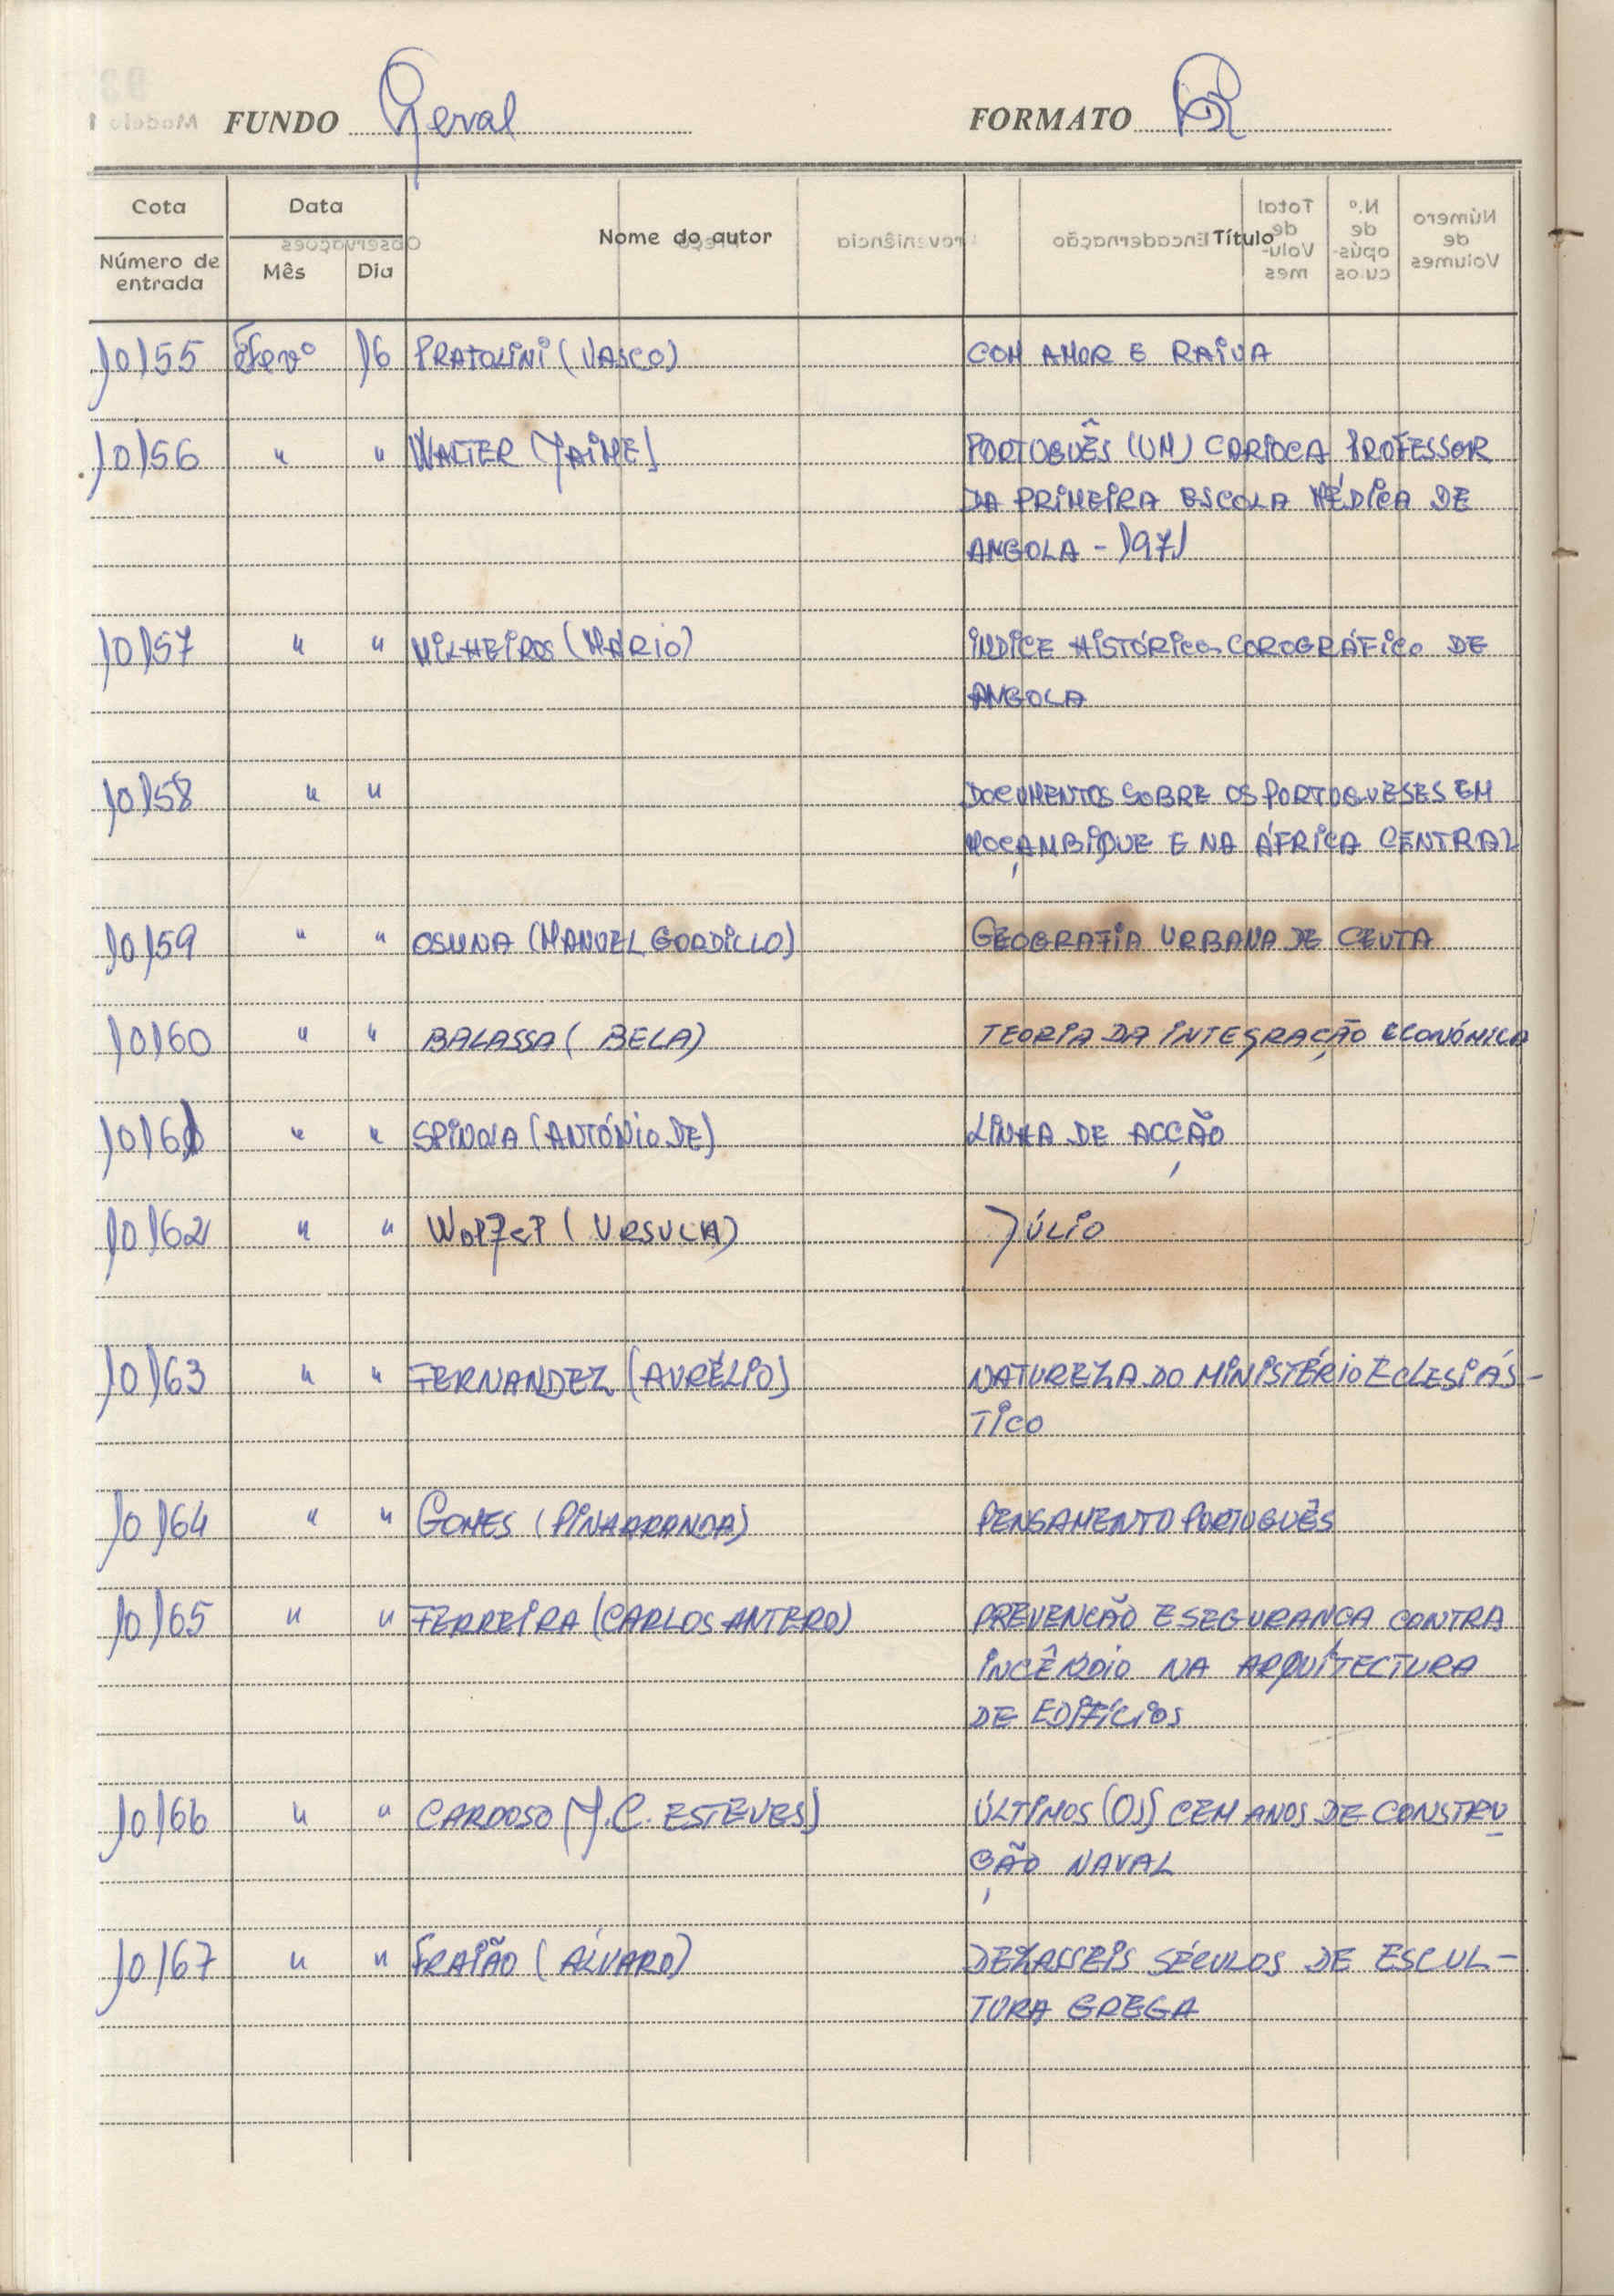 FUNDO Geral FORMATO
Cota Data Nome do autor Título
Número de entrada Mês Dia
10155 Fevº 16 PRATOLINI (VASCO) COM AMOR E RAIVA
10156 " " WALTER (JAIME) PORTUGUÊS (UM) CARIOCA PROFESSOR
DA PRIMEIRA ESCOLA MÉDICA DE
ANGOLA - 1971
10157 " " MILHEIROS (MÁRIO) ÍNDICE HISTÓRICO COROGRÁFICO DE
ANGOLA
10158 " " DOCUMENTOS SOBRE OS PORTUGUESES EM
MOÇAMBIQUE E NA ÁFRICA CENTRAL
10159 " " OSUNA (MANUEL GORDILLO) GEOGRAFIA URBANA DE CEUTA
10160 " " BALASSA (BELA) TEORIA DA INTEGRAÇÃO ECONÓMICA
10161 " " SPINOLA (ANTÓNIO DE) LINHA DE ACÇÃO
10162 " " (URSULA) JÚLIO
10163 " " FERNANDEZ (AURÉLIO) NATUREZA DO MINISTÉRIO ECLESIÁS-
TICO
10164 " " GOMES (PINHARANDA) PENSAMENTO PORTUGUÊS
10165 " " FERREIRA (CARLOS ANTERO) PREVENCÃO E SEGURANCA CONTRA
INCÊNDIO NA ARQUÍTECTURA
DE EDIFÍCIOS
10166 " " CARDOSO (J.C. ESTEVES) ÚLTIMOS (OS) CEM ANOS DE CONSTRU
ÇÃO NAVAL
10167 " " FRAIÃO (ÁLVARO) DEZASSEIS SÉCULOS DE ESCUL-
TURA GREGA